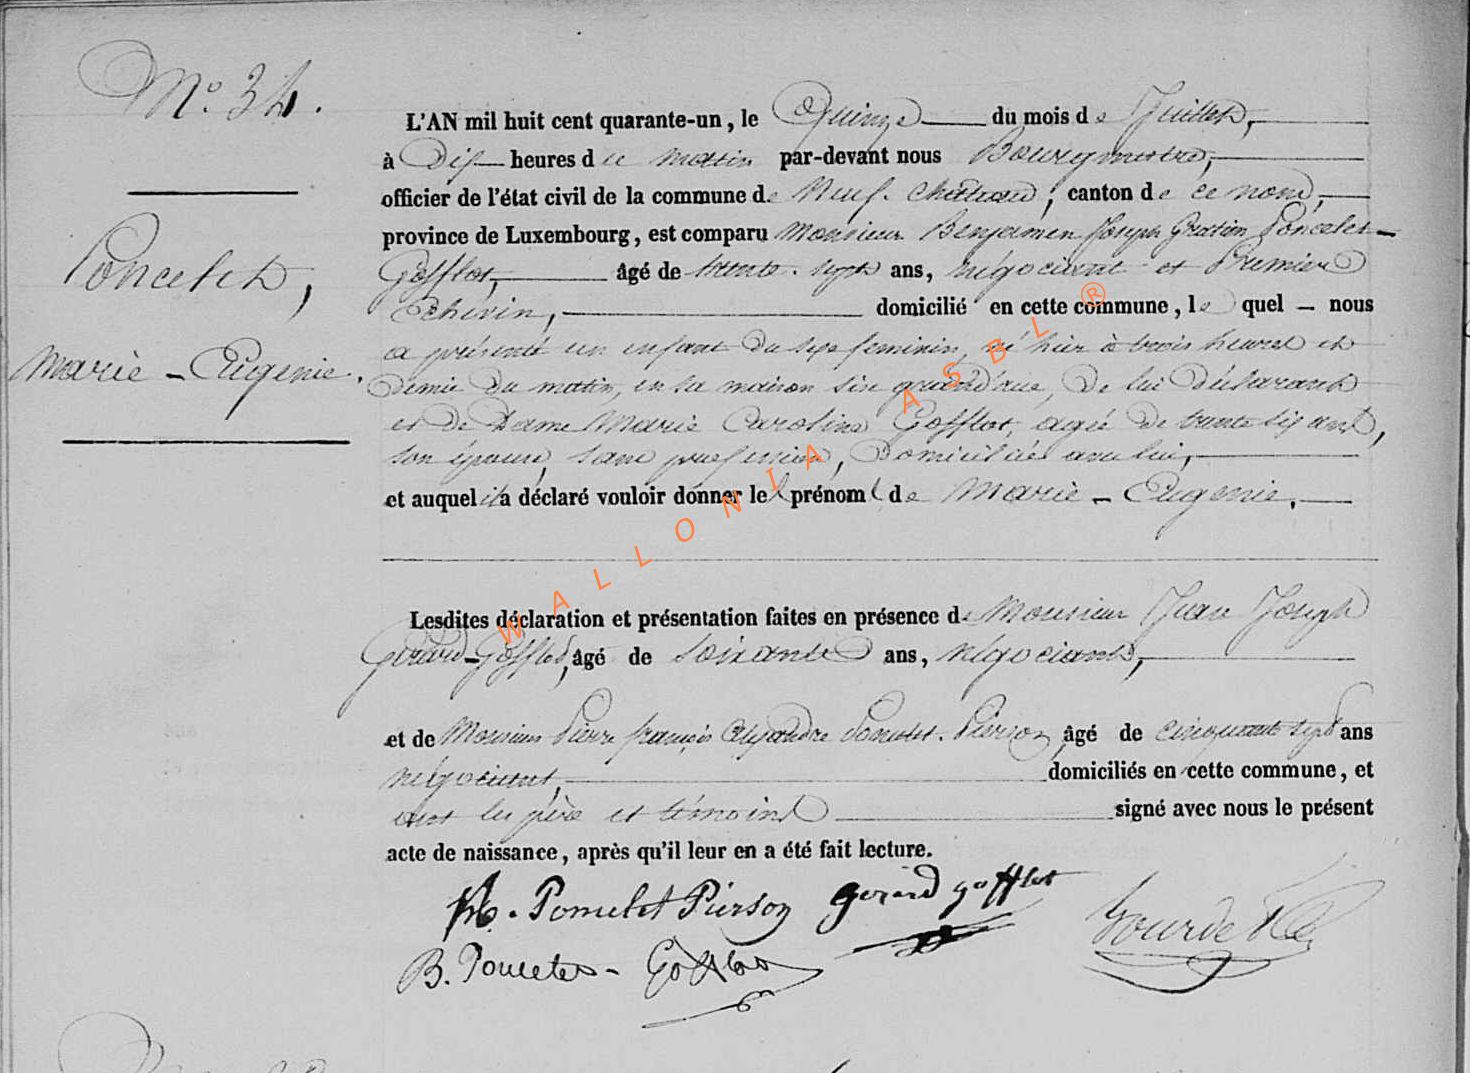 N.° 34.
Poncelet,
Marie - Eugenie.
L'AN mil huit cent quarante-un, le Quinze du mois de Juillet,
à Dix heures du matin par-devant nous Bourgmestre,
officier de l'état civil de la commune de Neuf-chateau, canton de ce nom,
province de Luxembourg, est comparu Monsieur Benjamin Joseph Gratien Poncelet-
Gofflot, âgé de trente-sept ans, négociant et Premier
Echevin, domicilié en cette commune, le quel - nous
a présenté un enfant du sexe feminin, né hier à trois heures et
demie du matin, en sa maison sise grand'rue, de lui déclarant
et de Dame Marie Caroline Gofflot, agée de trente six ans,
son épouse, sans profession, domiciliée avec lui,
et auquel il a déclaré vouloir donner les prénoms de Marie - Eugenie.
Lesdites déclaration et présentation faites en présence de Monsieur Jean Joseph
Gerard-Gofflot, âgé de soixante ans, négociant,
et de Monsieur Pierre françois Alexandre Poncelet-Pierson, âgé de cinquante sept ans
négociant, domiciliés en cette commune, et
ont les père et témoins signé avec nous le présent
acte de naissance, après qu'il leur en a été fait lecture.
Poncelet Pierson gerard gofflot
B. Poncelet - Gofflot
WALLONIA ASBL ®